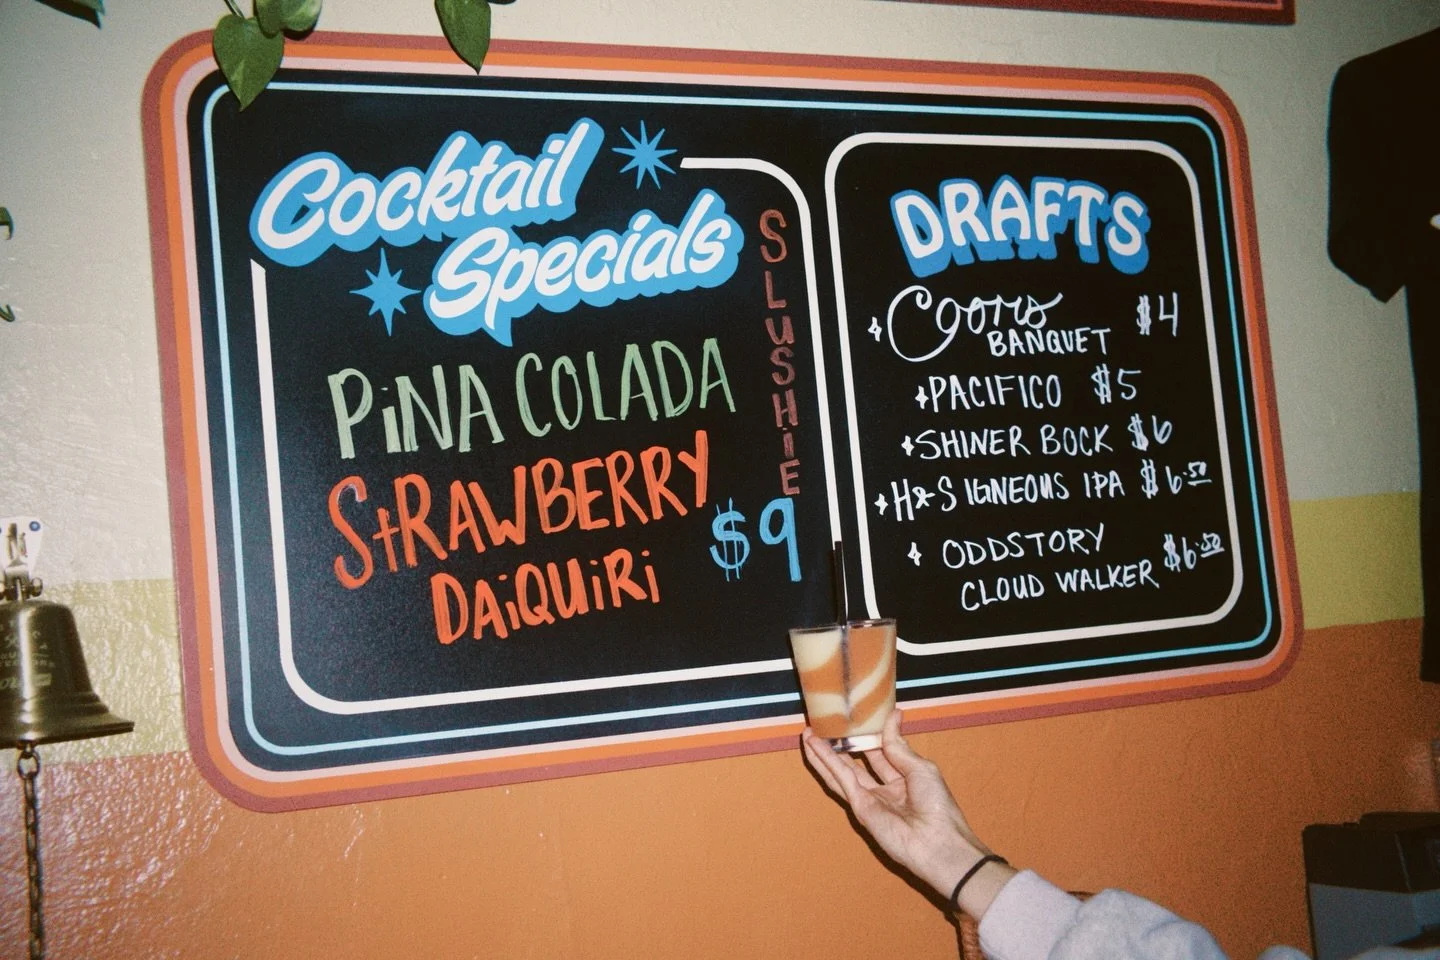 Cocktail
Specials
SLUSHiE
PiNA COLADA
StRAWBERRY
DAiQUiRi
$9
DRAFTS
Coors
BANQUET $4
PACIFICO $5
SHINER BOCK $6
H&S IGNEOUS IPA $6.50
ODDSTORY
CLOUD WALKER $6.50